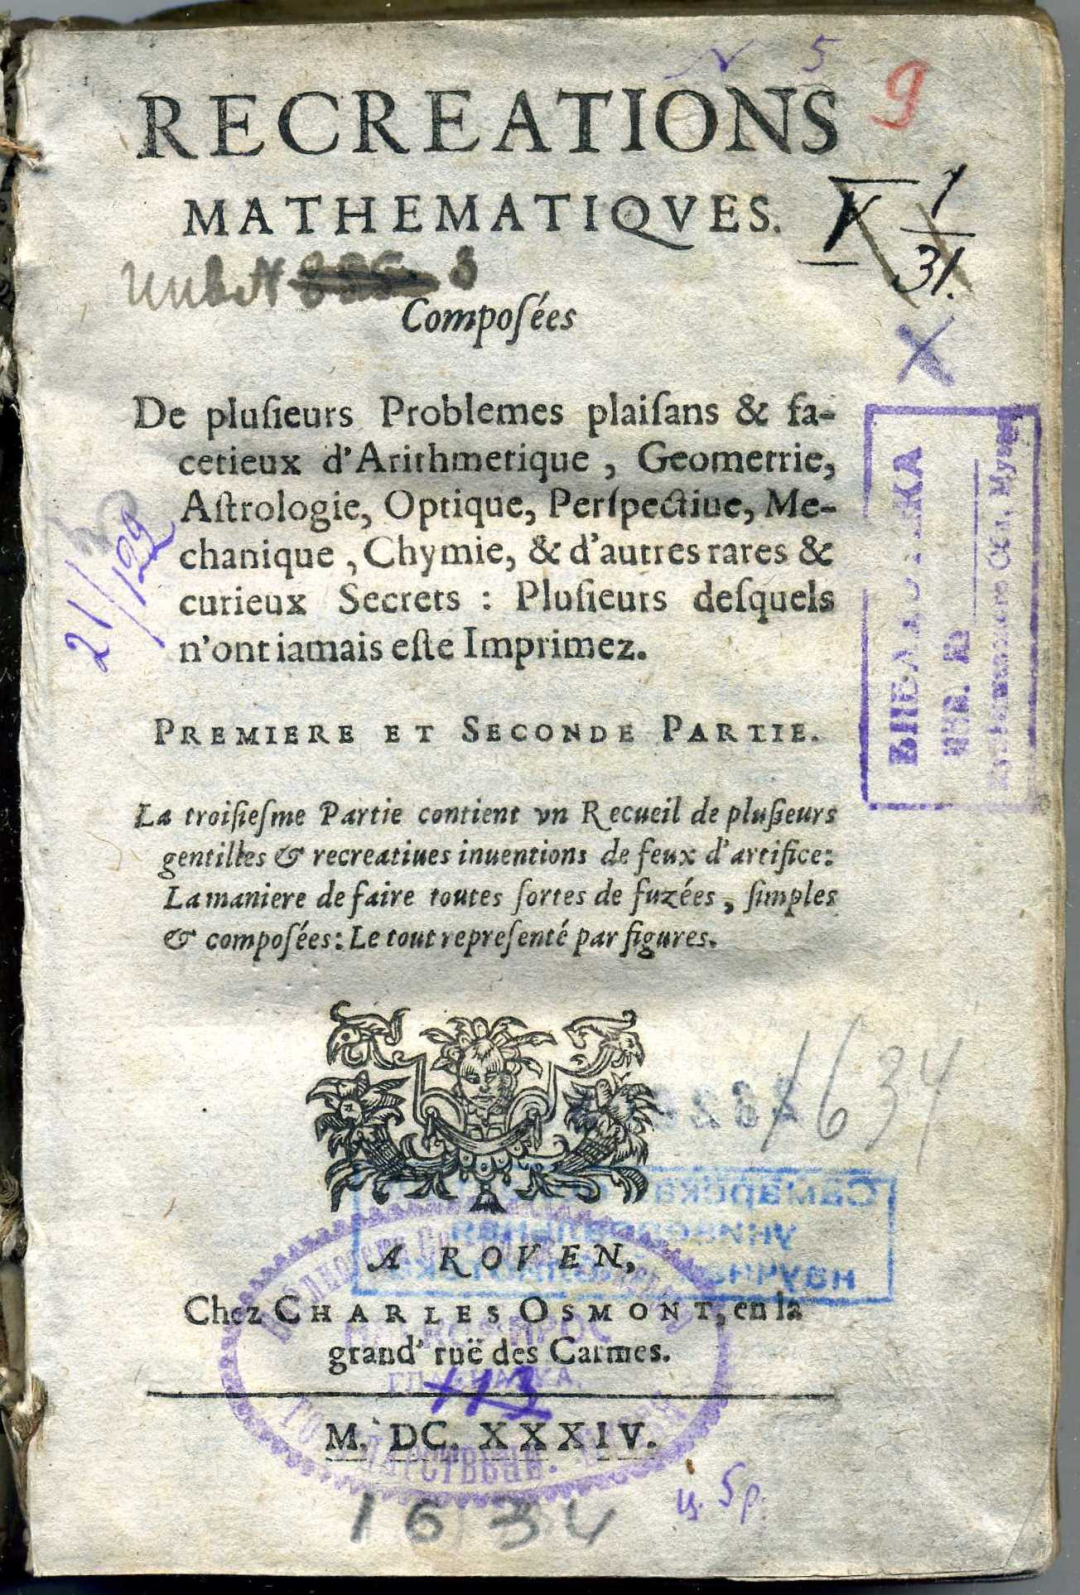 N 5
9
RECREATIONS
MATHEMATIQVES.
1
31.
Инв №
3
Compoſées
X
De pluſieurs Problemes plaiſans & fa-
cetieux d'Arithmetique, Geometrie,
Aſtrologie, Optique, Perſpectiue, Me-
chanique, Chymie, & d'autres rares &
curieux Secrets : Pluſieurs deſquels
n'ont iamais eſte Imprimez.
21/129
БИБЛИОТЕКА
Инв. №
PREMIERE ET SECONDE PARTIE.
La troiſieſme Partie contient vn Recueil de pluſieurs
gentilles & recreatiues inuentions de feux d'artifice:
La maniere de faire toutes ſortes de fuzées, ſimples
& compoſées: Le tout repreſenté par figures.
1634
Самарская
универсальная
научная библиотека
A ROVEN,
Chez CHARLES OSMONT, en la
grand' ruë des Carmes.
113
M. DC. XXXIV.
ц. 5р.
1634